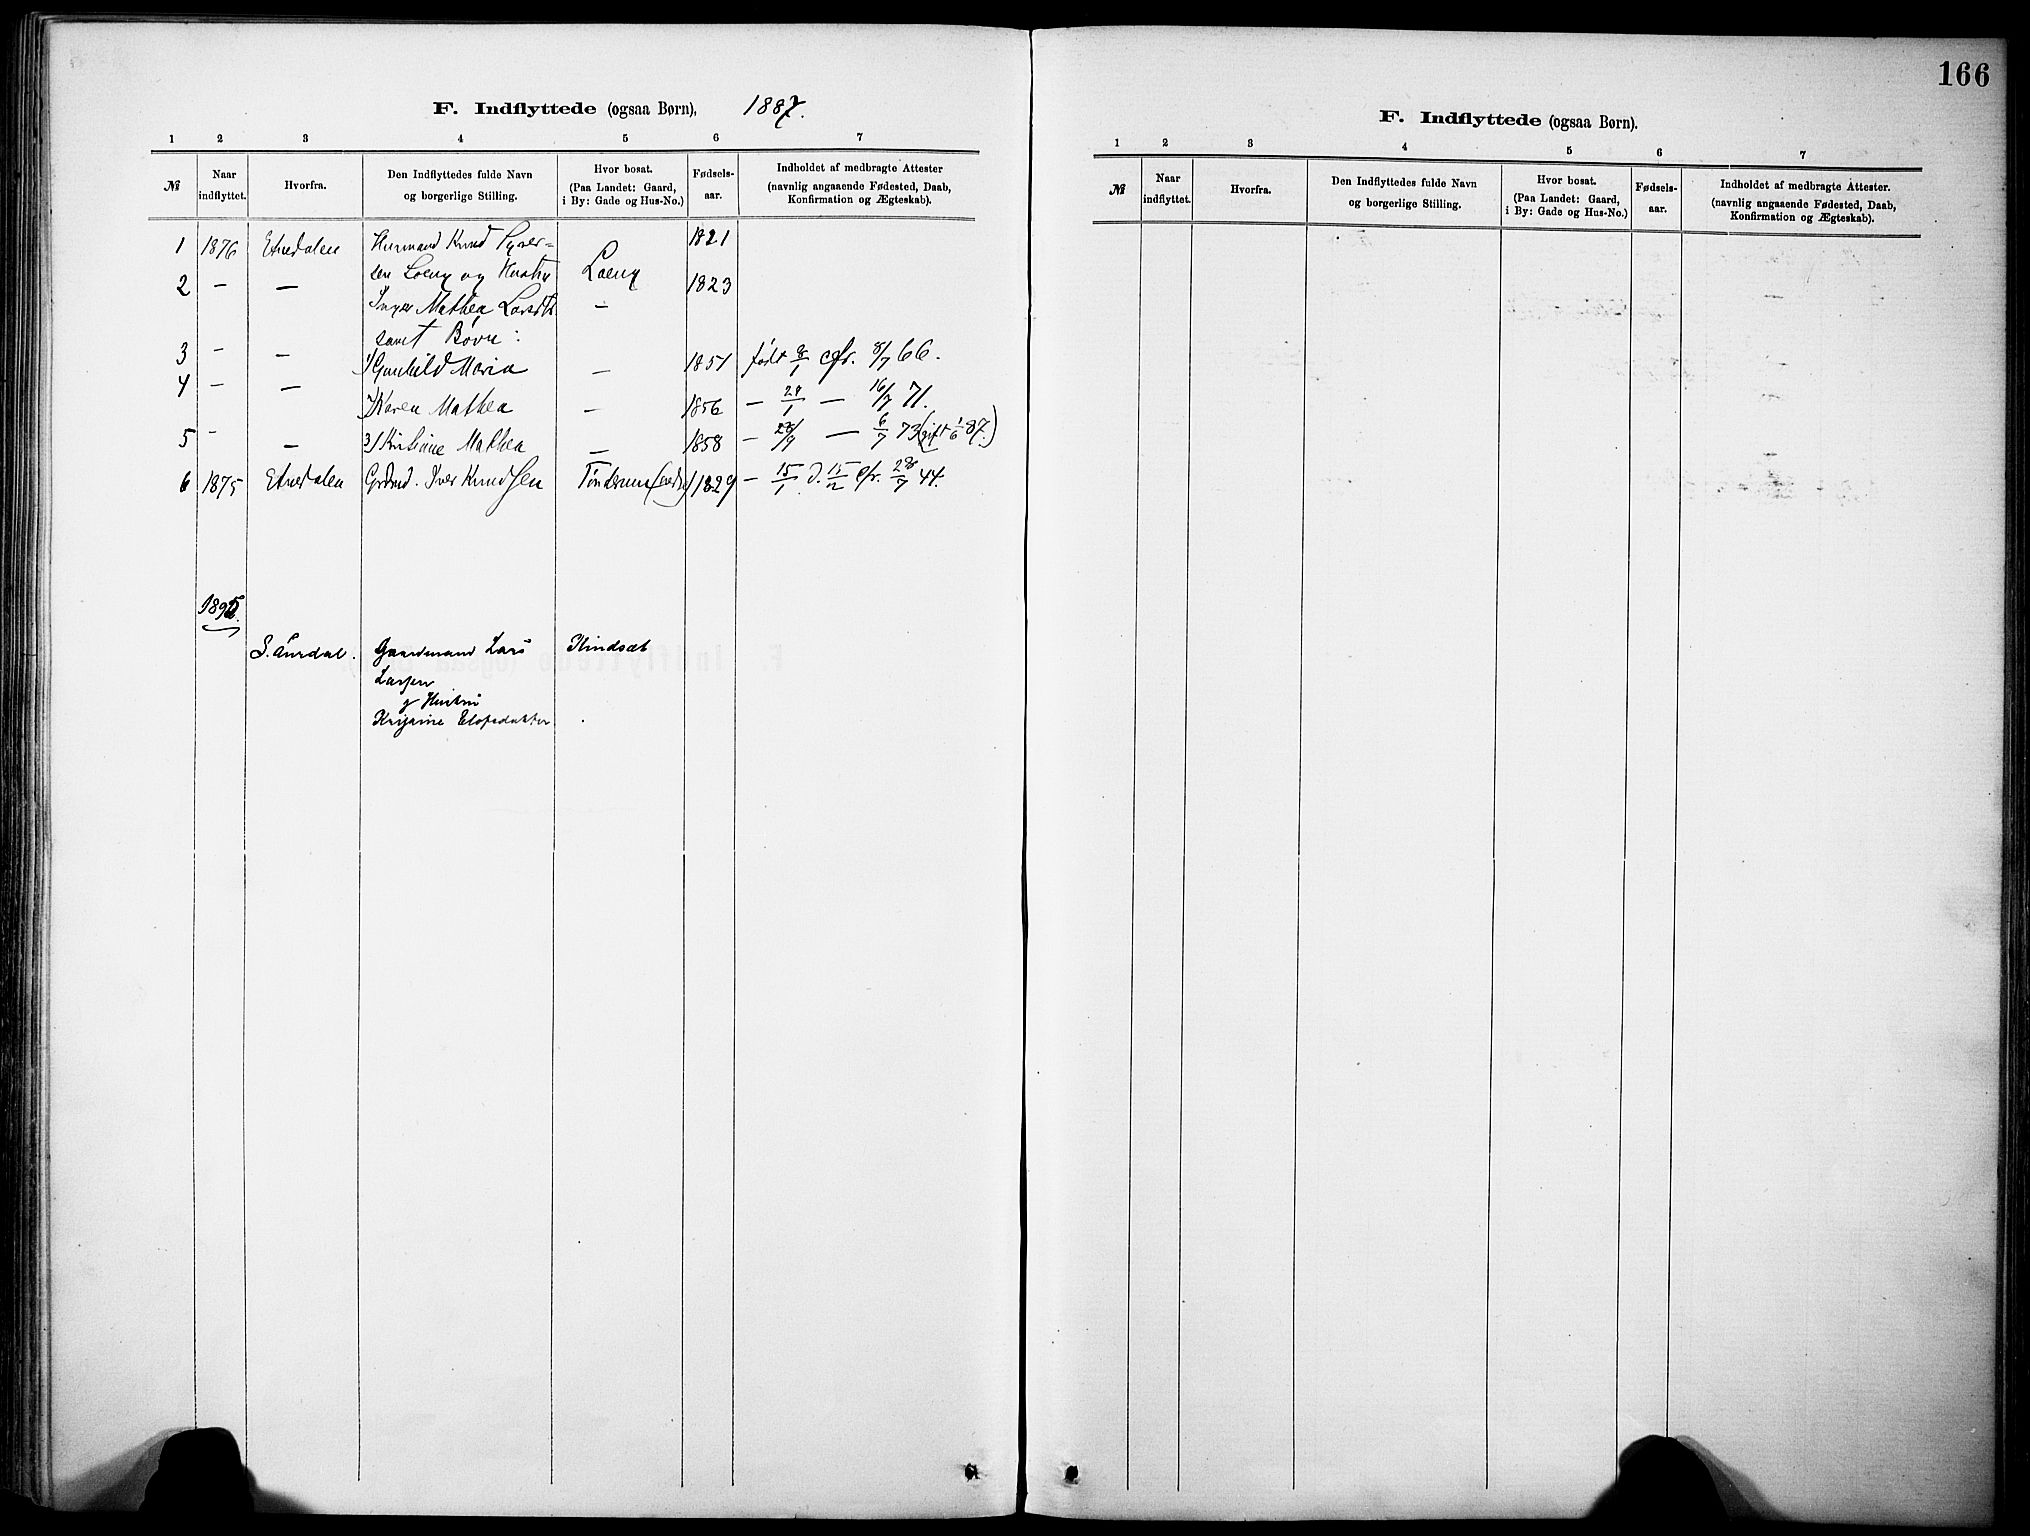 166
F. Indflyttede (ogsaa Børn), 1887.
1 2 3 4 5 6 7
№ Naar indflyttet. Hvorfra. Den Indflyttedes fulde Navn og borgerlige Stilling. Hvor bosat. (Paa Landet: Gaard, i By: Gade og Hus-No.) Fødsels-aar. Indholdet af medbragte Attester (navnlig angaaende Fødested, Daab, Konfirmation og Ægteskab).
1 1876 Etnedalen Huusmand Knud Syver= 1821
sen Loeng og Hustru Loeng
2 — — 1823
Inger Mathea Larsdtr. —
samt Børn:
3 — — 1) Gunhild Maria — 1851 født 8/1 cfr. 8/7 66.
4 — — 2) Karen Mathea — 1856 — 29/1 — 16/7 71.
5 — — 3) Kristiane Mathea — 1858 — 28/9 — 6/7 73 (gift 1/6 87.)
6 1875 Etnedalen Grdmd. Iver Knudsen 1829 — 15/1 d. 15/2 cfr. 28/7 44.
1895.
S. Aurdal. Gaardmand Lars Klindsæt
Larsen
og Hustru
F. Indflyttede (ogsaa Børn).
1 2 3 4 5 6 7
№ Naar indflyttet. Hvorfra. Den Indflyttedes fulde Navn og borgerlige Stilling. Hvor bosat. (Paa Landet: Gaard, i By: Gade og Hus-No.) Fødsels-aar. Indholdet af medbragte Attester. (navnlig angaaende Fødested, Daab, Konfirmation og Ægteskab).